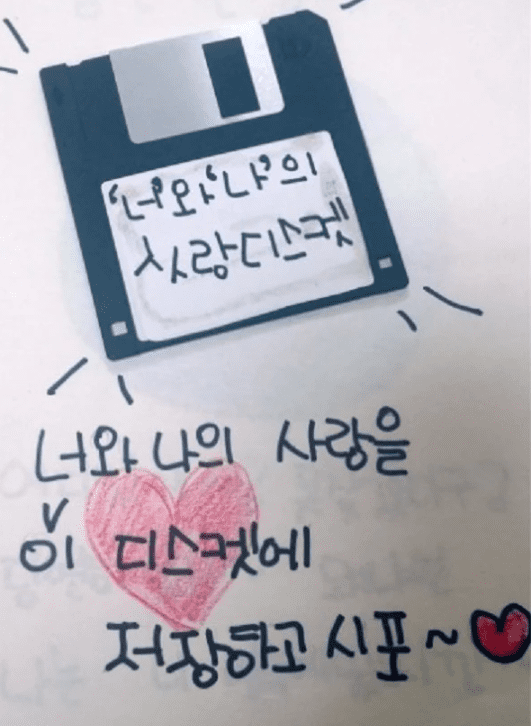 '너'와 '나'의
사랑디스켓
너와 나의 사랑을
이 디스켓에
저장하고 시포~